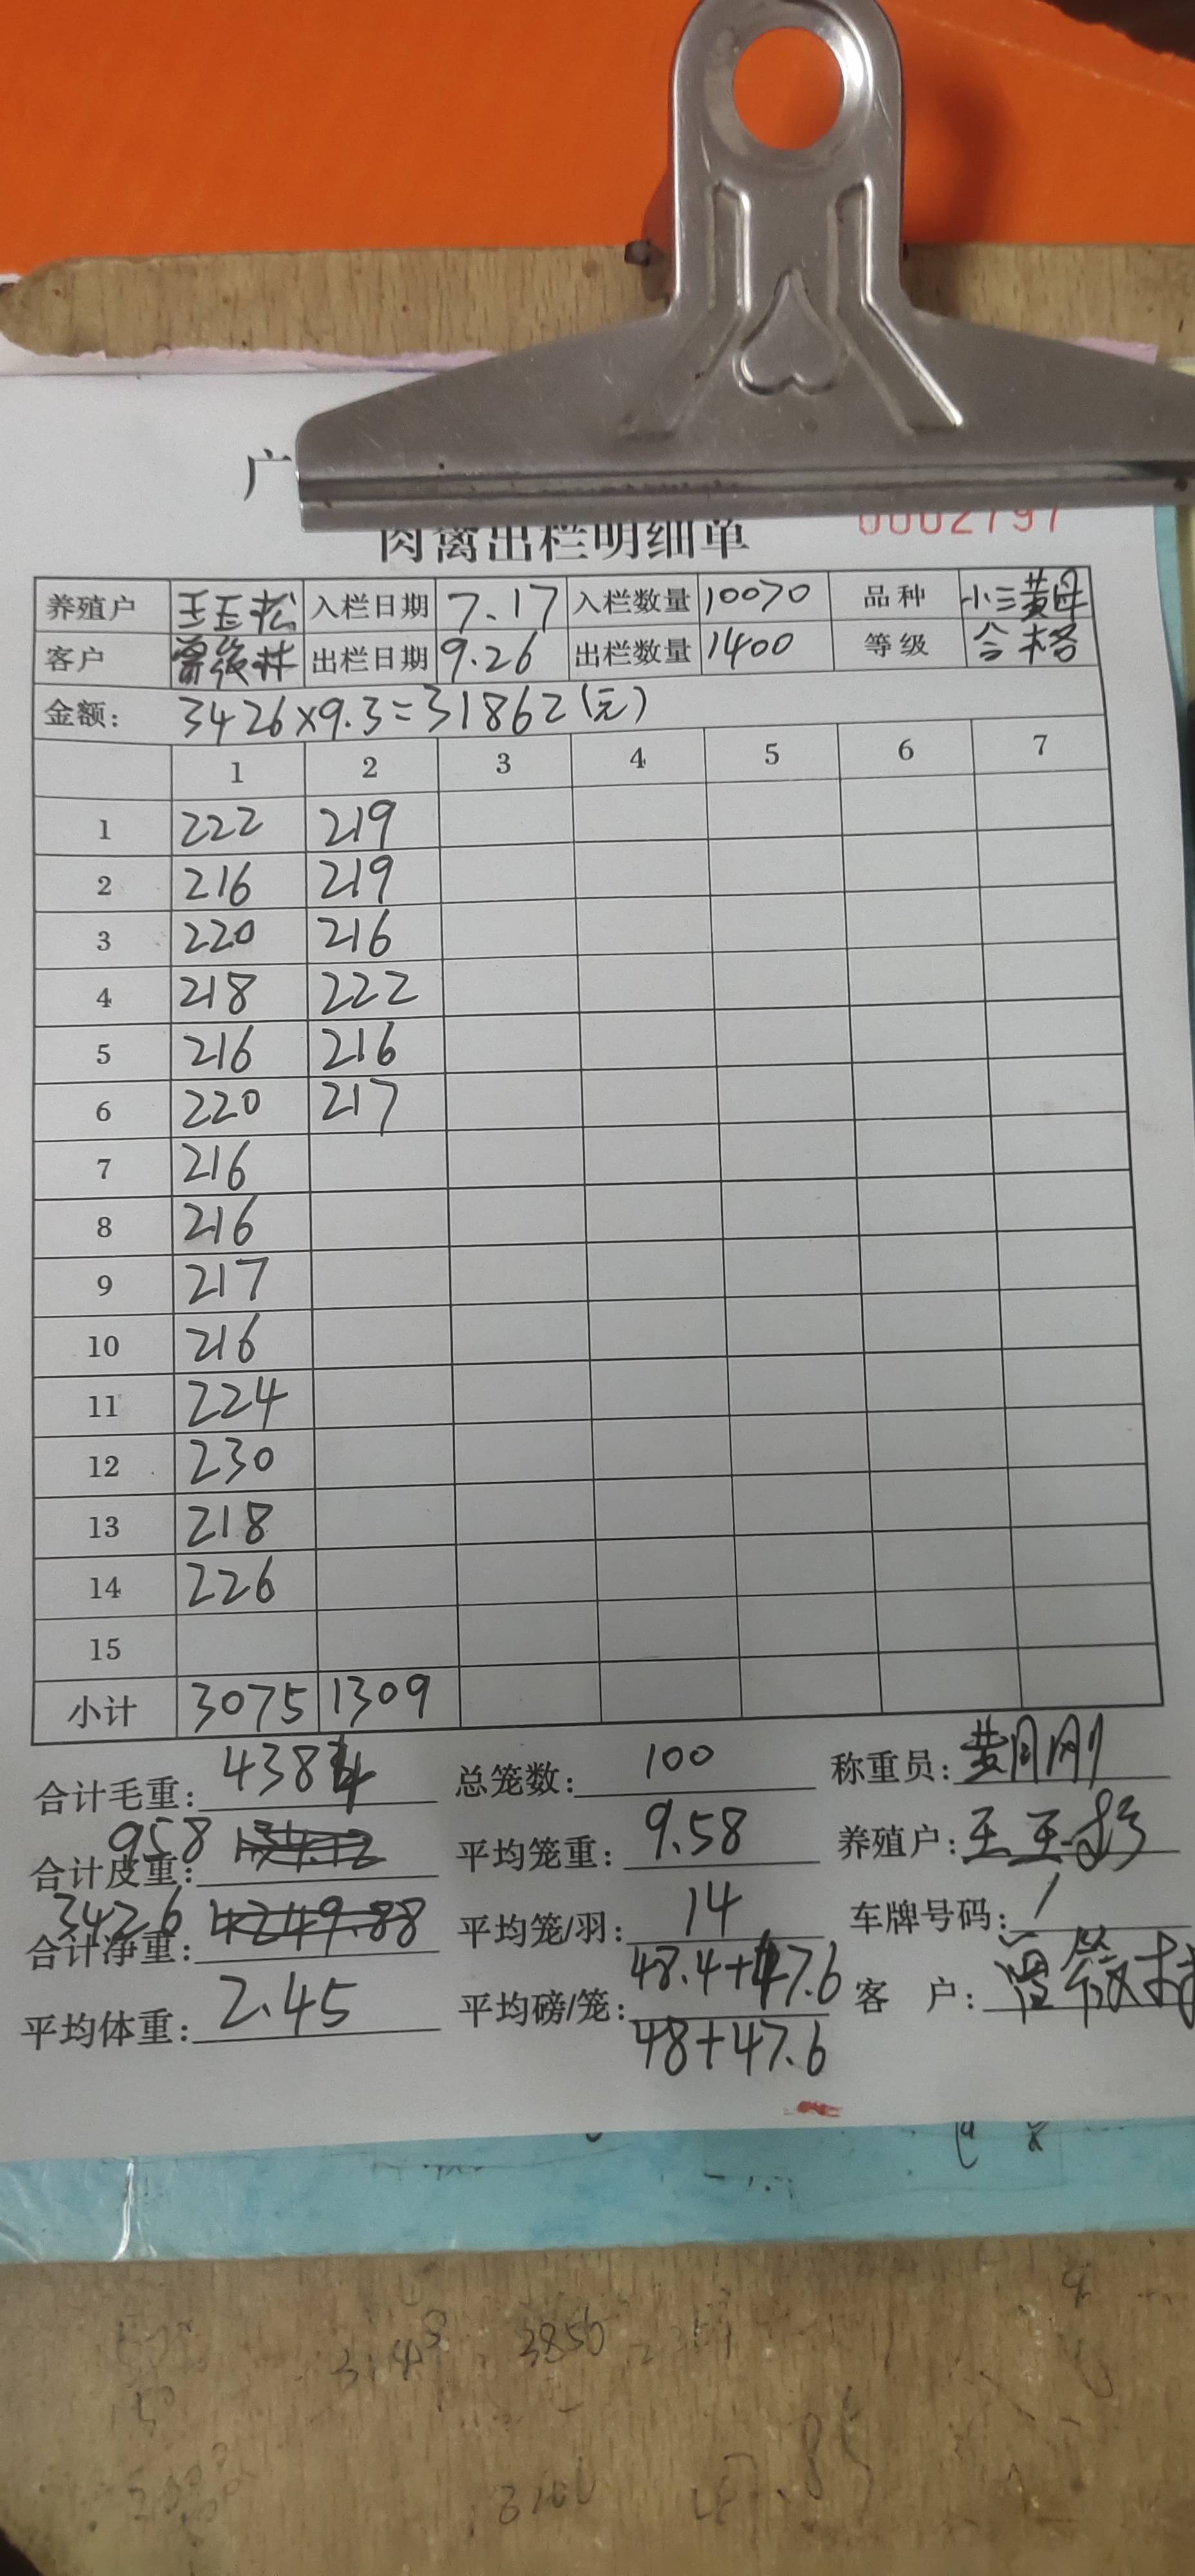 广
肉禽出栏明细单 0002797
养殖户 王玉松 入栏日期 7.17 入栏数量 10070 品种 小三黄母
客户 出栏日期 9.26 出栏数量 1400 等级 合格
金额: 3426×9.3=31862(元)
1 2 3 4 5 6 7
1 222 219
2 216 219
3 220 216
4 218 222
5 216 216
6 220 217
7 216
8 216
9 217
10 216
11 224
12 230
13 218
14 226
15
小计 3075 1309
合计毛重: 4384 总笼数: 100 称重员:
合计皮重: 958 平均笼重: 9.58 养殖户:
合计净重: 3426 4249.88 平均笼/羽: 14 车牌号码: /
平均体重: 2.45 平均磅/笼: 48.4+47.6 客 户:
48+47.6
3850